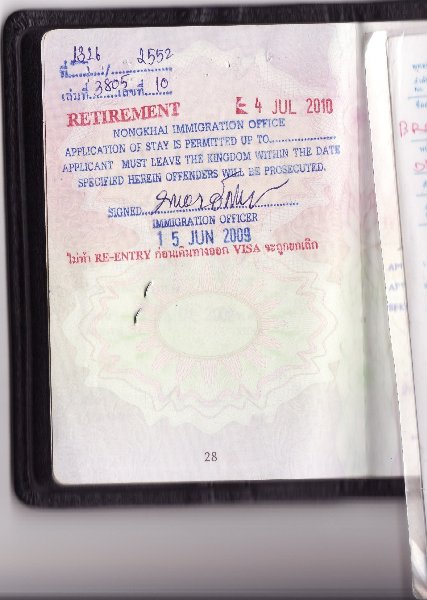 1326 2552
ที่........./.........
เล่มที่ 3805 เลขที่ 10
RETIREMENT 4 JUL 2010
NONGKHAI IMMIGRATION OFFICE
APPLICATION OF STAY IS PERMITTED UP TO................
APPLICANT MUST LEAVE THE KINGDOM WITHIN THE DATE
SPECIFIED HEREIN OFFENDERS WILL BE PROSECUTED.
SIGNED
IMMIGRATION OFFICER
1 5 JUN 2009
ไม่ทำ RE-ENTRY ก่อนเดินทางออก VISA จะถูกยกเลิก
28